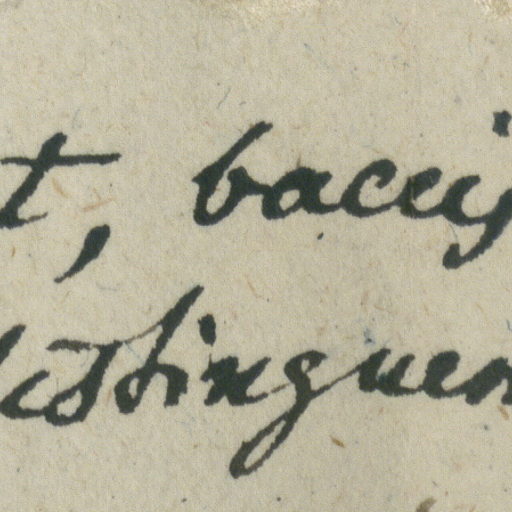 t, baccis
distinguen